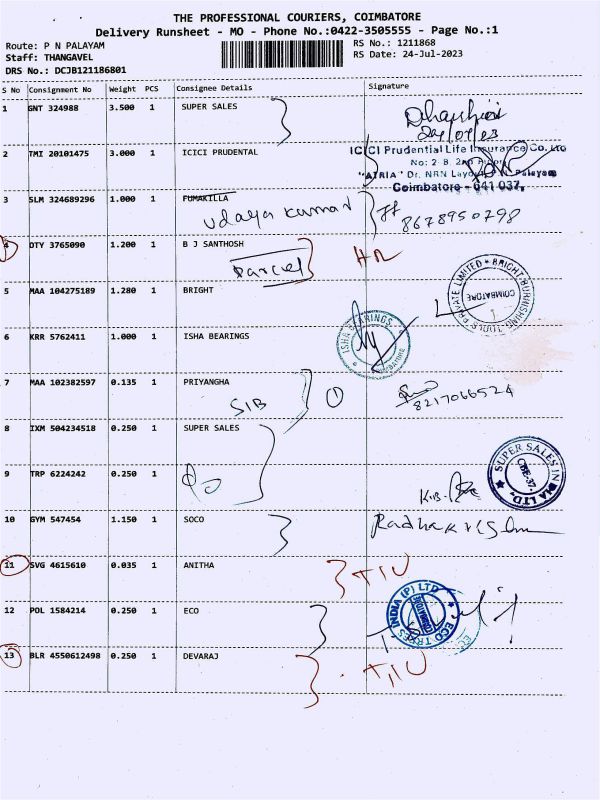 THE PROFESSIONAL COURIERS, COIMBATORE
Delivery Runsheet - MO - Phone No.:0422-3505555 - Page No.:1
Route: P N PALAYAM
Staff: THANGAVEL
DRS No.: DCJB121186801
RS No.: 1211868
RS Date: 24-Jul-2023
S No Consignment No Weight PCS Consignee Details Signature
1 GNT 324988 3.500 1 SUPER SALES
2 TMI 20101475 3.000 1 ICICI PRUDENTIAL
ICICI Prudential Life Insurance Co. Ltd
No: 2-B, 2nd Floor
"ATRIA" Dr. NRN Layout, P.N. Palayam
Coimbatore - 641 037.
3 SLM 324689296 1.000 1 FUMAKILLA
udaya kumar
8678950798
4 OTY 3765090 1.200 1 B J SANTHOSH
parcel
5 MAA 104275189 1.280 1 BRIGHT
COIMBATORE
6 KRR 5762411 1.000 1 ISHA BEARINGS
ISHA BEARINGS
COIMBATORE
7 MAA 102382597 0.135 1 PRIYANGHA
SIB
1
8217066524
8 IXM 504234518 0.250 1 SUPER SALES
SUPER SALES INDIA LTD.
CBE-37.
9 TRP 6224242 0.250 1
10 GYM 547454 1.150 1 SOCO
11 SVG 4615610 0.035 1 ANITHA
12 POL 1584214 0.250 1 ECO
ECO TREES INDIA (P) LTD
COIMBATORE
13 BLR 4550612498 0.250 1 DEVARAJ